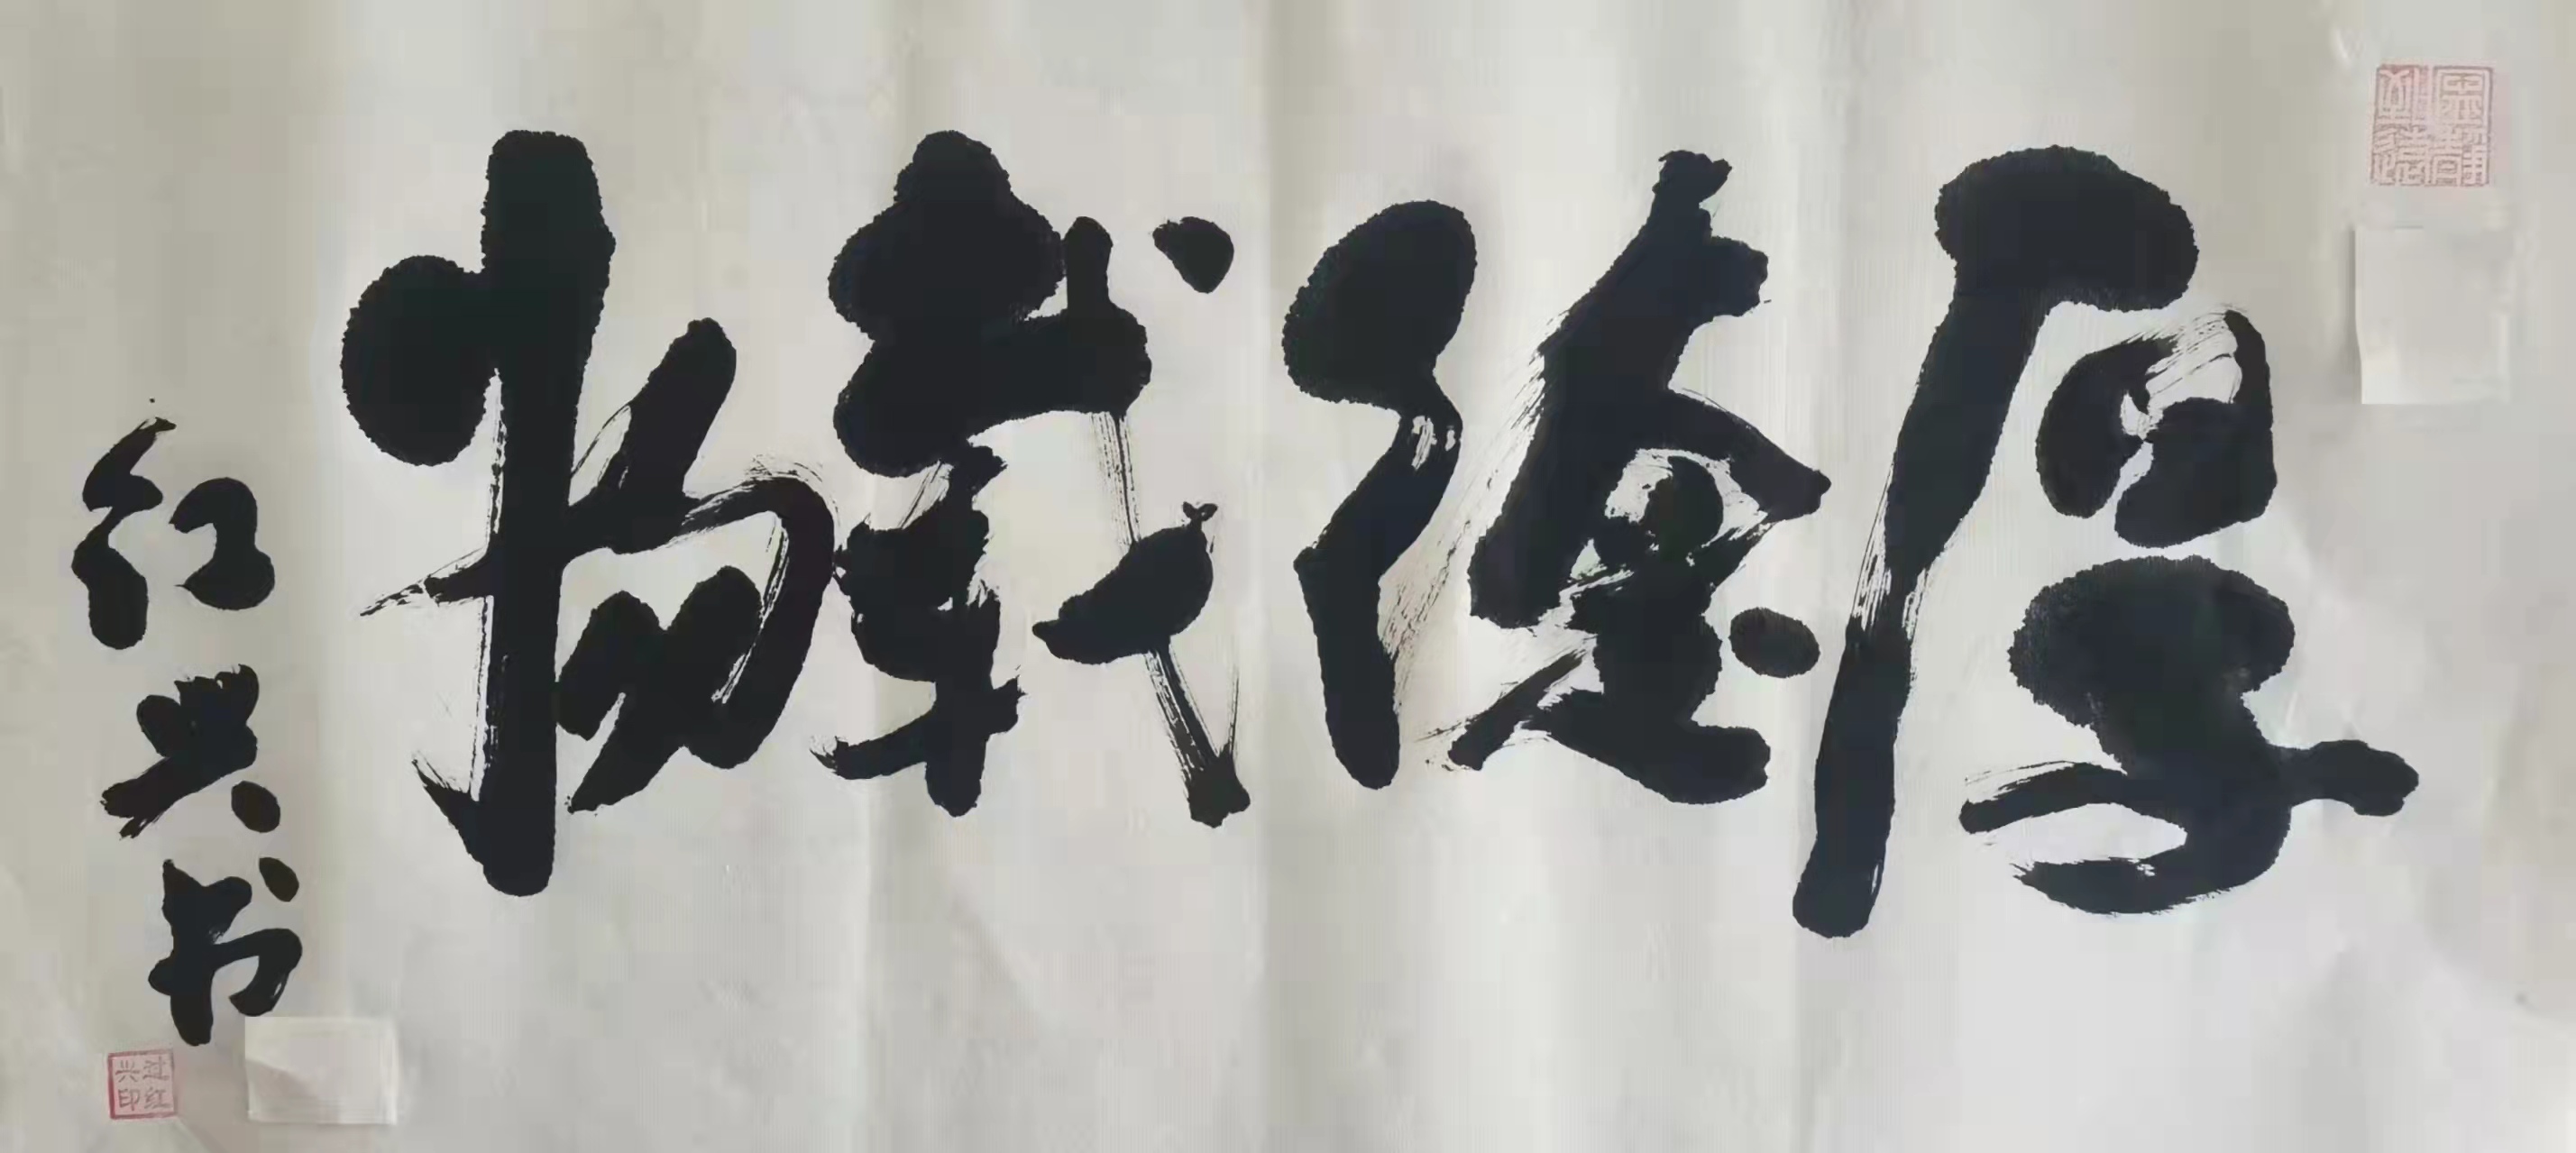 厚德载物
红兴书
过红兴印